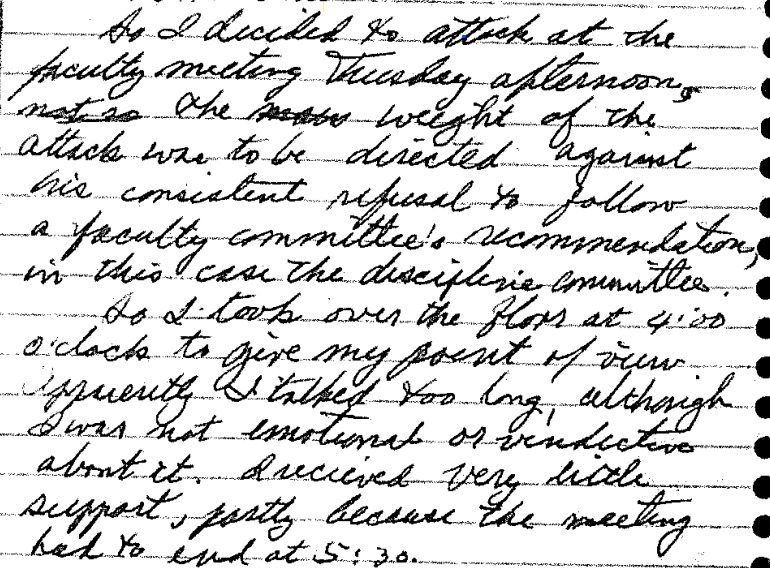 So I decided to attack at the
faculty meeting Tuesday afternoon,
not so The main weight of the
attack was to be directed against
his consistent refusal to follow
a faculty committee's recommendation,
in this case the discipline committee.
So I took over the floor at 4:00
o'clock to give my point of view
Apparently I talked too long, although
I was not emotional or vindictive
about it. I recieved very little
support, partly because the meeting
had to end at 5:30.